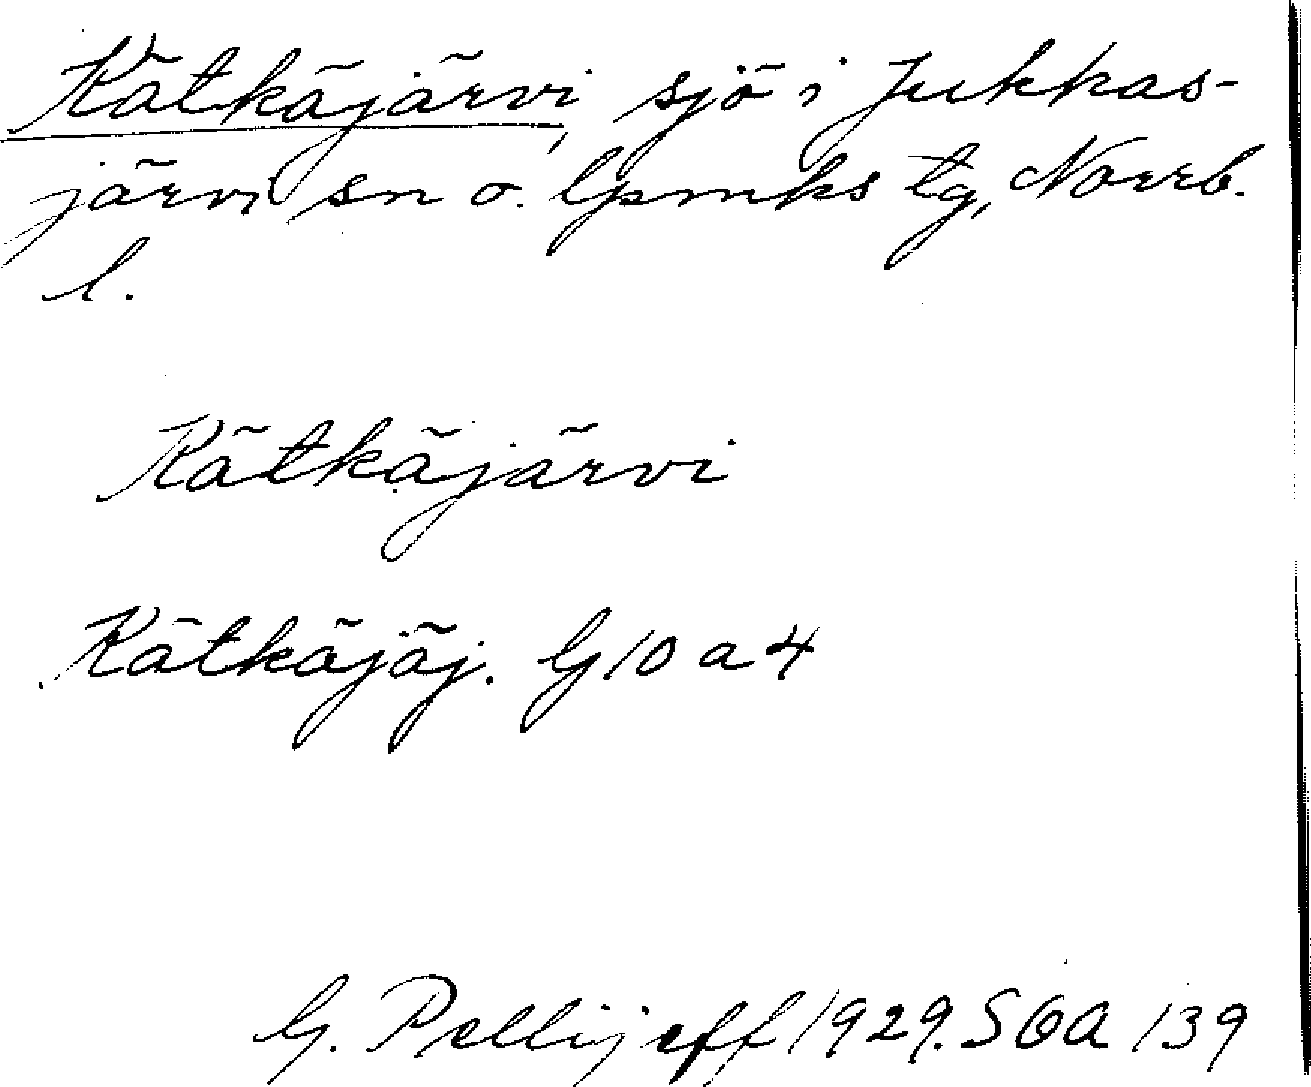 Kätkäjärvi, sjö i Jukkas-
järvi sn o. lpmks tg, Norrb.
l.
Kätkäjärvi
Kätkäjäj. G 10 a 4
G. Pellijeff 1929. SOA 139